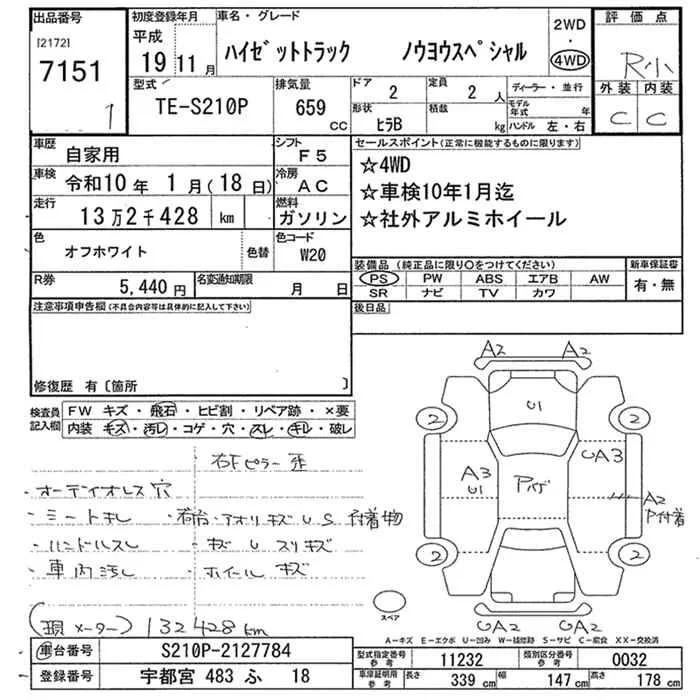 出品番号 初度登録年月 車名・グレード 2WD 評価点
[2172] 平成 ・
7151 19 11月 ハイゼットトラック ノウヨウスペシャル 4WD R小
1 型式 排気量 ドア 定員 ディーラー・並行 外装 内装
TE-S210P 659 CC 2 2人 モデル年式 年 C C
形状 積載
ヒラB kg ハンドル 左・右
車歴 自家用 シフト F5 セールスポイント(正常に機能するものに限ります)
車検 令和10年 1月(18日) 冷房 AC ☆4WD
走行 13万2千428 km 燃料 ガソリン ☆車検10年1月迄
☆社外アルミホイール
色 オフホワイト 色替 色コード W20
R券 5,440円 名変通知期限 月 日
装備品(純正品に限り○をつけてください) 新車保証書
PS PW ABS エアB AW 有・無
SR ナビ TV カワ
注意事項申告欄(不具合内容等は具体的に記入して下さい) 後日品
修復歴 有〔箇所 〕
検査員記入欄 FW キズ・飛石・ヒビ割・リペア跡・×要
内装 キズ・汚レ・コゲ・穴・スレ・キレ・破レ
右Fピラー歪
・オーディオレス穴
・シートキレ ・荷台・アオリキズUS付着物
・ハンドルスレ キズUスリキズ
・車内汚レ ・ホイールキズ
(現メーター) 132428km
A2 A2
2 U1 2
A3 U1 UA3
A2 P付着
2 2
スペア UA2 UA2
A-キズ E-エクボ U-凹み W-補修跡 S-サビ C-腐食 XX-交換済
車台番号 S210P-2127784 型式指定番号 参考 11232 類別区分番号 参考 0032
登録番号 宇都宮 483 ふ 18 車庫証明用 参考 長さ 339cm 幅 147cm 高さ 178cm